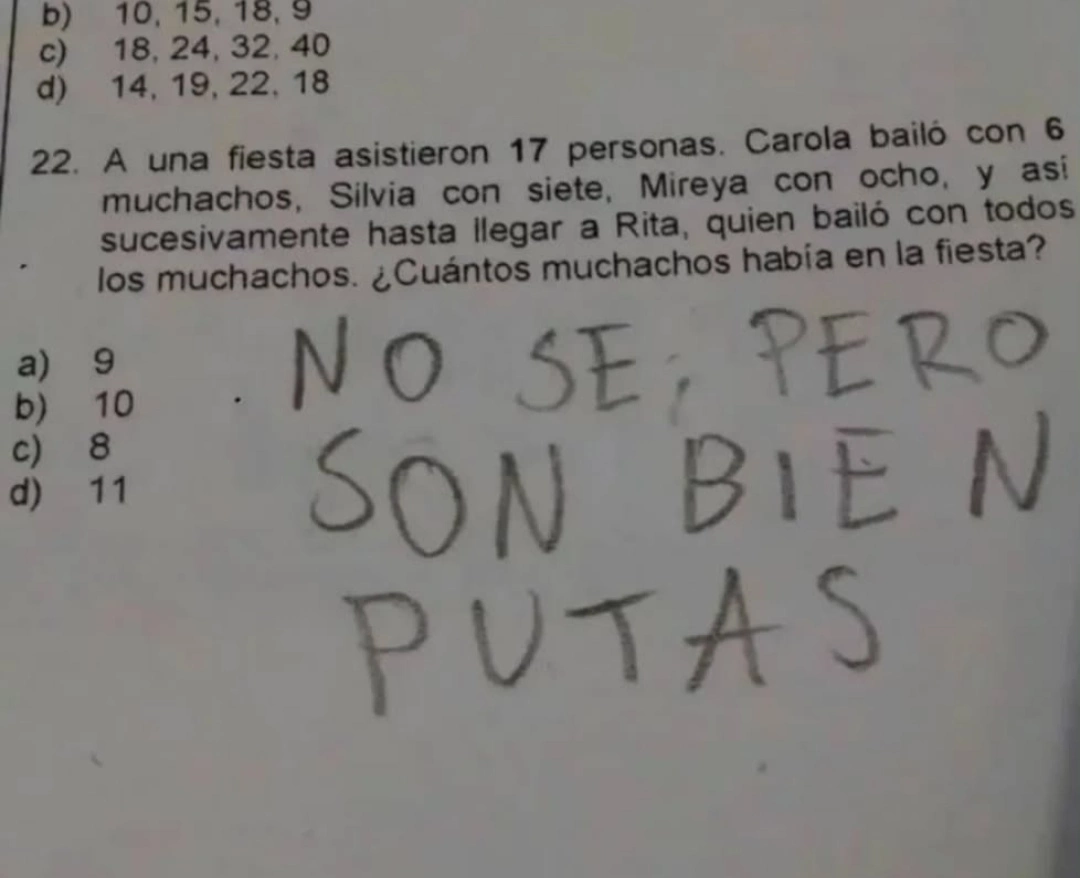 b) 10, 15, 18, 9
c) 18, 24, 32, 40
d) 14, 19, 22, 18
22. A una fiesta asistieron 17 personas. Carola bailó con 6
muchachos, Silvia con siete, Mireya con ocho, y así
sucesivamente hasta llegar a Rita, quien bailó con todos
los muchachos. ¿Cuántos muchachos había en la fiesta?
a) 9
b) 10
c) 8
d) 11
NO SE, PERO
SON BIEN
PUTAS